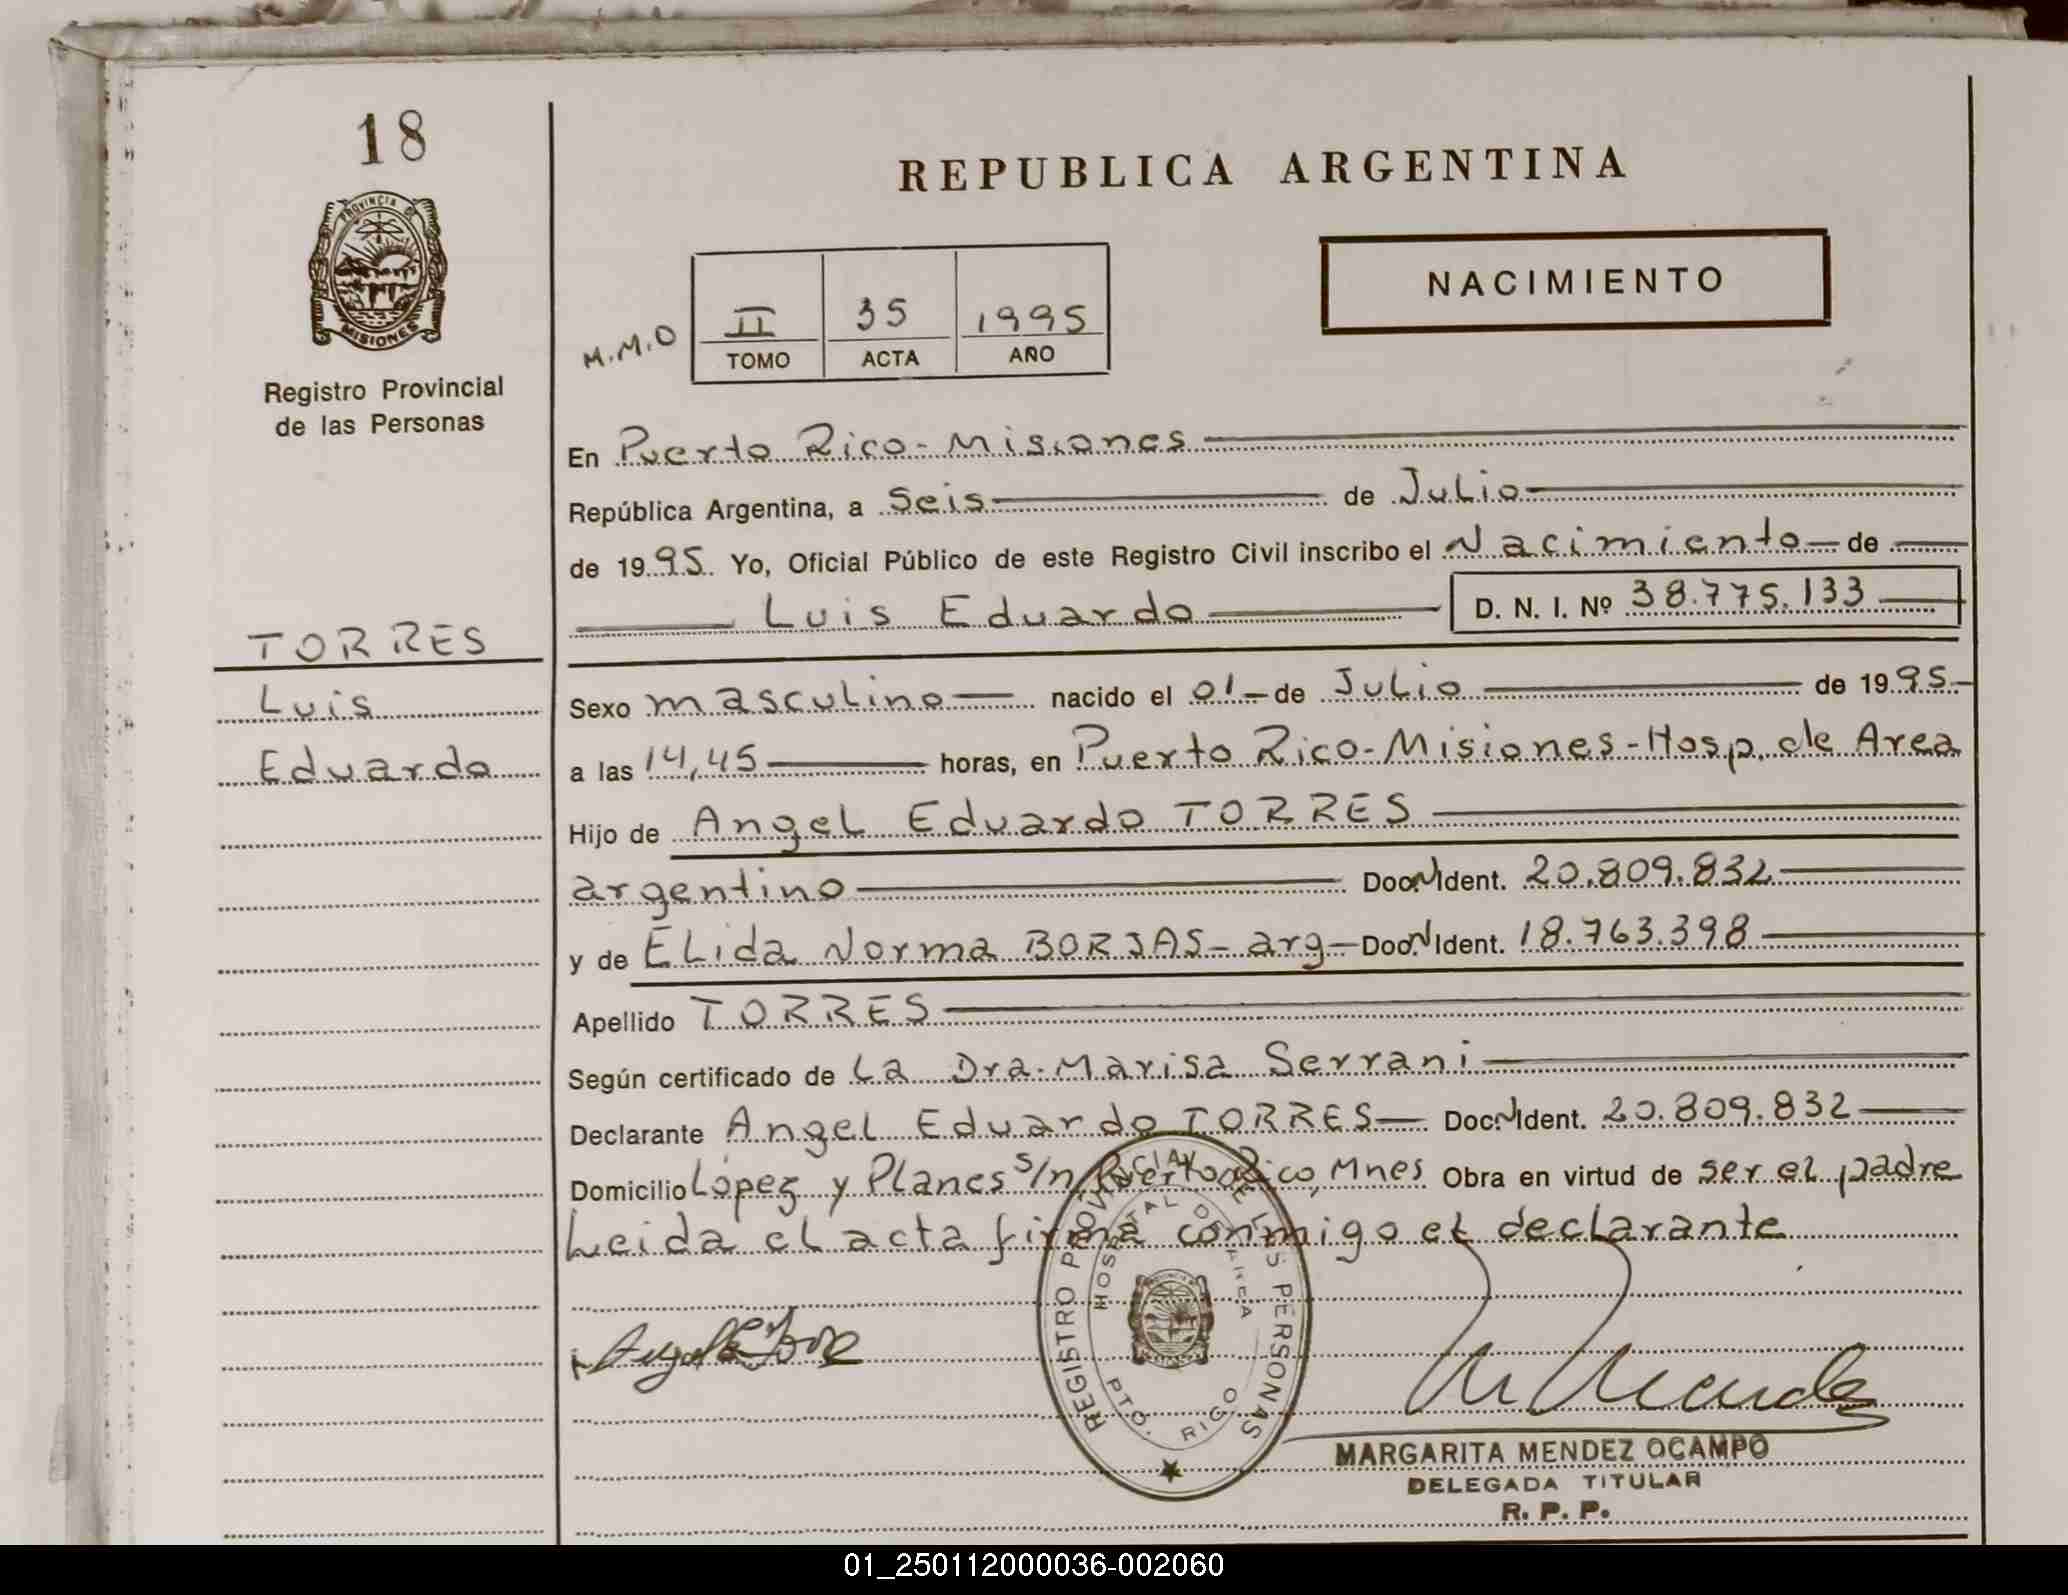 18
PROVINCIA DE
MISIONES
Registro Provincial
de las Personas
TORRES
Luis
Eduardo
REPUBLICA ARGENTINA
NACIMIENTO
M.M.O
II 35 1995
TOMO ACTA AÑO
En Puerto Rico - Misiones
República Argentina, a seis de Julio
de 1995 Yo, Oficial Público de este Registro Civil inscribo el Nacimiento de
Luis Eduardo D. N. I. Nº 38.775.133
Sexo masculino nacido el 01 de Julio de 1995
a las 14,45 horas, en Puerto Rico - Misiones - Hosp. de Area
Hijo de Angel Eduardo TORRES
argentino Doc. N Ident. 20.809.832
y de Elida Norma BORJAS - arg - Doc. N Ident. 18.763.398
Apellido TORRES
Según certificado de la Dra. Marisa Serrani
Declarante Angel Eduardo TORRES Doc. N Ident. 20.809.832
Domicilio López y Planes s/n, Puerto Rico, Mnes Obra en virtud de ser el padre
Leida el acta firma conmigo el declarante
REGISTRO PROVINCIAL DE LAS PERSONAS
HOSPITAL DE AREA
PTO. RICO
MARGARITA MENDEZ OCAMPO
DELEGADA TITULAR
R. P. P.
01_250112000036-002060